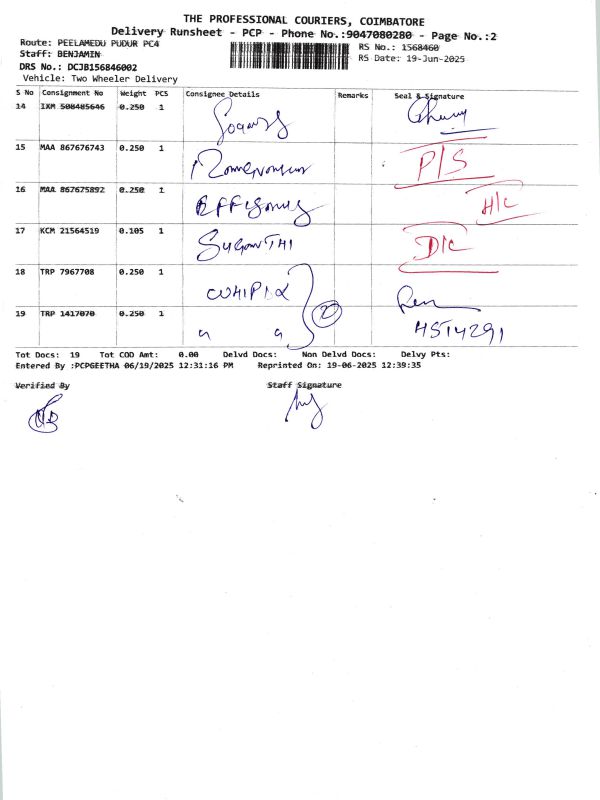 THE PROFESSIONAL COURIERS, COIMBATORE
Delivery Runsheet - PCP - Phone No.:9047080280 - Page No.:2
Route: PEELAMEDU PUDUR PC4
Staff: BENJAMIN
RS No.: 1568460
DRS No.: DCJB156846002
RS Date: 19-Jun-2025
Vehicle: Two Wheeler Delivery
S No Consignment No Weight PCS Consignee Details Remarks Seal & Signature
14 IXM 508485646 0.250 1
15 MAA 867676743 0.250 1 P/S
16 MAA 867675892 0.250 1 H/C
17 KCM 21564519 0.105 1 SUGANTHI D/C
18 TRP 7967708 0.250 1
19 TRP 1417070 0.250 1 " " 2
Tot Docs: 19 Tot COD Amt: 0.00 Delvd Docs: Non Delvd Docs: Delvy Pts:
Entered By :PCPGEETHA 06/19/2025 12:31:16 PM Reprinted On: 19-06-2025 12:39:35
Verified By Staff Signature